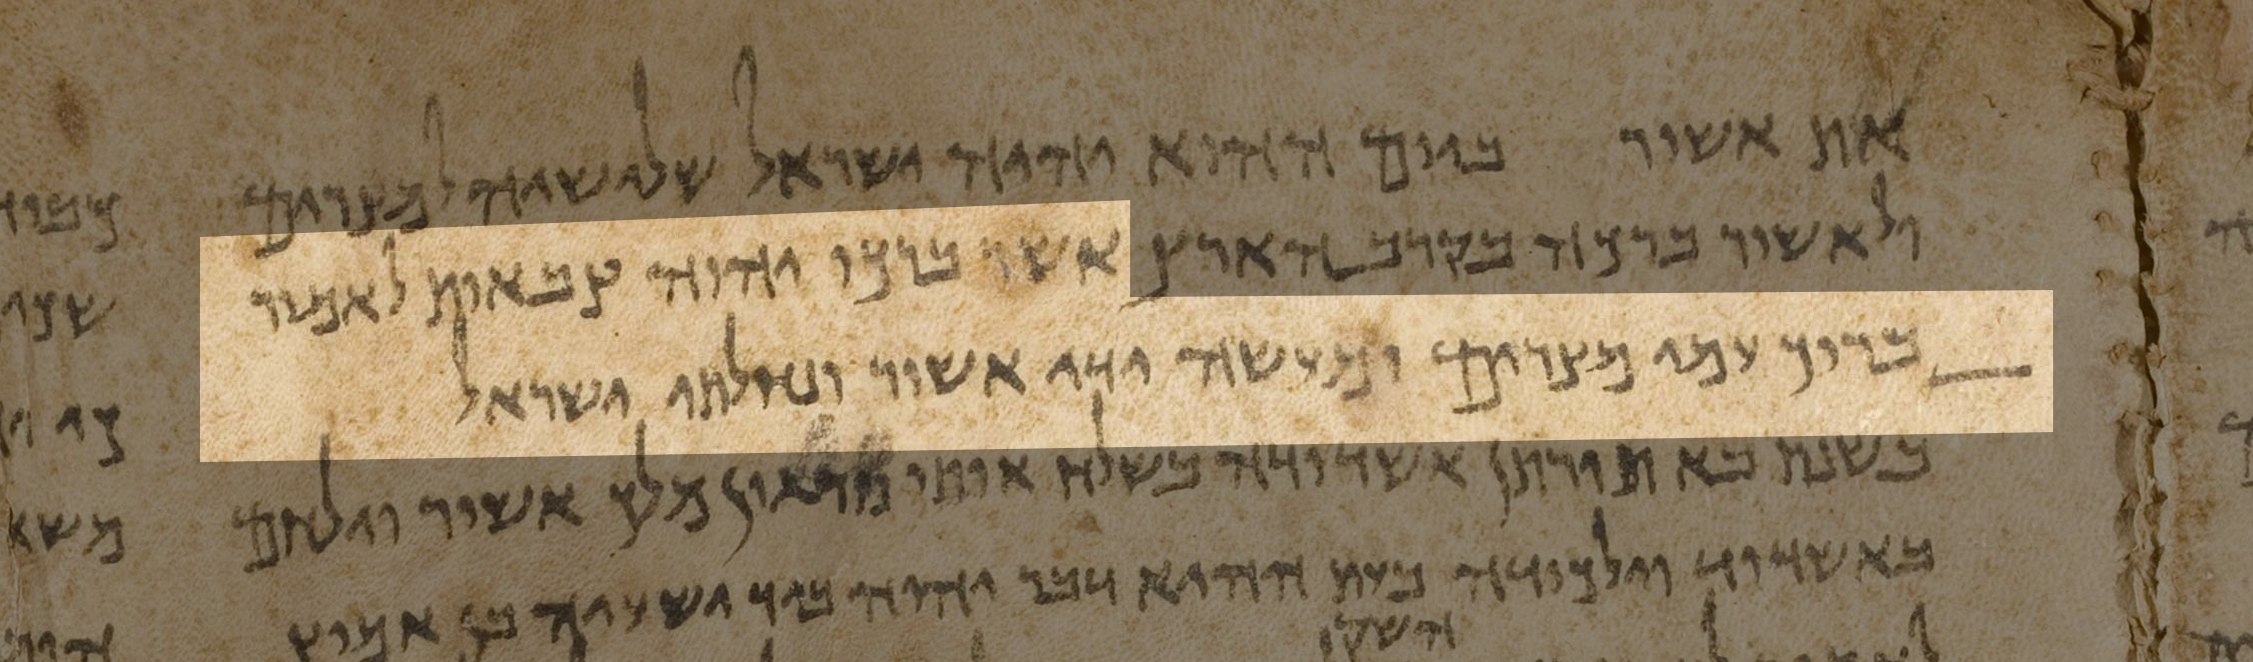 את אשור ביום ההוא יהיה ישראל שלישיה למצרים
ולאשור ברכה בקרב הארץ אשר ברכו יהוה צבאות לאמור
ברוך עמי מצרים ומעשה ידי אשור ונחלתי ישראל
בשנת בא תורתן אשדודה בשלח אותו מלך אשור וילחם
באשדוד וילכודה בעת ההיא דבר יהוה ביד ישעיה בן אמוץ
השק